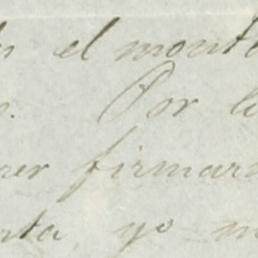 el monte
Por l
ner firmars
nta yo m